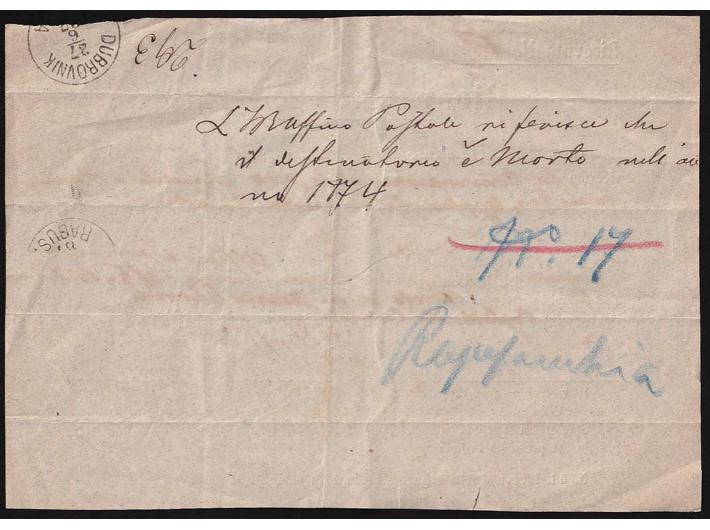 DUBROVNIK
27
293.
L'Uffizio Postale riferisce che
il destinatario è Morto nell' an
no 1874
RAGUS
No. 17